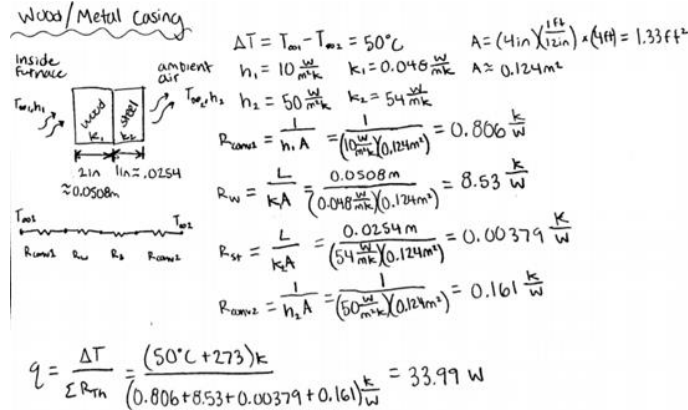 Wood/Metal Casing
ΔT = T∞1 - T∞2 = 50°C    A = (4in)(1ft/12in) * (4ft) = 1.33 ft²
h₁ = 10 W/m²K    k₁ = 0.048 W/mK    A ≈ 0.124m²
h₂ = 50 W/m²K    k₂ = 54 W/mK
Inside furnace
ambient air
T∞1, h₁
wood k₁
steel k₂
T∞2, h₂
2in    1in ≈ .0254
≈ 0.0508m
T∞1    T∞2
Rconv1    Rw    Rs    Rconv2
Rconv1 = 1/(h₁A) = 1/((10 W/m²K)(0.124m²)) = 0.806 K/W
Rw = L/(kA) = 0.0508m/((0.048 W/mK)(0.124m²)) = 8.53 K/W
Rst = L/(k₂A) = 0.0254m/((54 W/mK)(0.124m²)) = 0.00379 K/W
Rconv2 = 1/(h₂A) = 1/((50 W/m²K)(0.124m²)) = 0.161 K/W
q = ΔT/(ΣRTh) = (50°C + 273)K/((0.806 + 8.53 + 0.00379 + 0.161) K/W) = 33.99 W